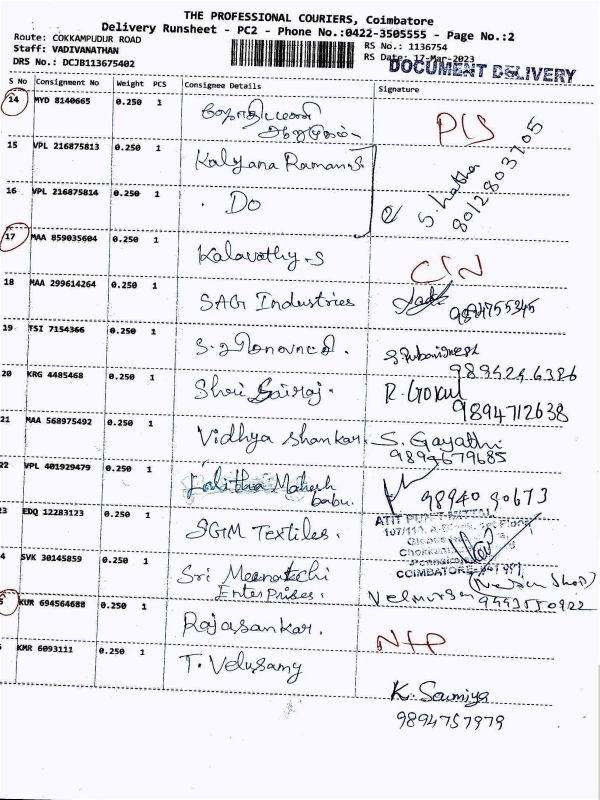 THE PROFESSIONAL COURIERS, Coimbatore
Delivery Runsheet - PC2 - Phone No.:0422-3505555 - Page No.:2
Route: COKKAMPUDUR ROAD
RS No.: 1136754
Staff: VADIVANATHAN
RS Date: 17-Mar-2023
DRS No.: DCJB113675402
DOCUMENT DELIVERY
S No Consignment No Weight PCS Consignee Details Signature
14 MYD 8140665 0.250 1
PCS
15 VPL 216875813 0.250 1 Kalyana Raman.S.
16 VPL 216875814 0.250 1 Do
8012803705
17 MAA 859035604 0.250 1 Kalavathy.S
18 MAA 299614264 0.250 1 SAG Industries
9894755345
19 TSI 7154366 0.250 1
9894246386
20 KRG 4485468 0.250 1 Shri Sairaj. R. Gokul
9894712638
21 MAA 568975492 0.250 1 Vidhya Shankar. S. Gayathri
9894679685
22 VPL 401929479 0.250 1 Lalitha Mahesh babu.
98940 90673
23 EDQ 12283123 0.250 1 SGM Textiles.
COIMBATORE
24 SVK 30145859 0.250 1 Sri Meenatchi Enterprises.
Velmurugan
25 KUR 694564688 0.250 1 Rajasankar.
KMR 6093111 0.250 1 T. Velusamy
K. Sowmiya
9894757979